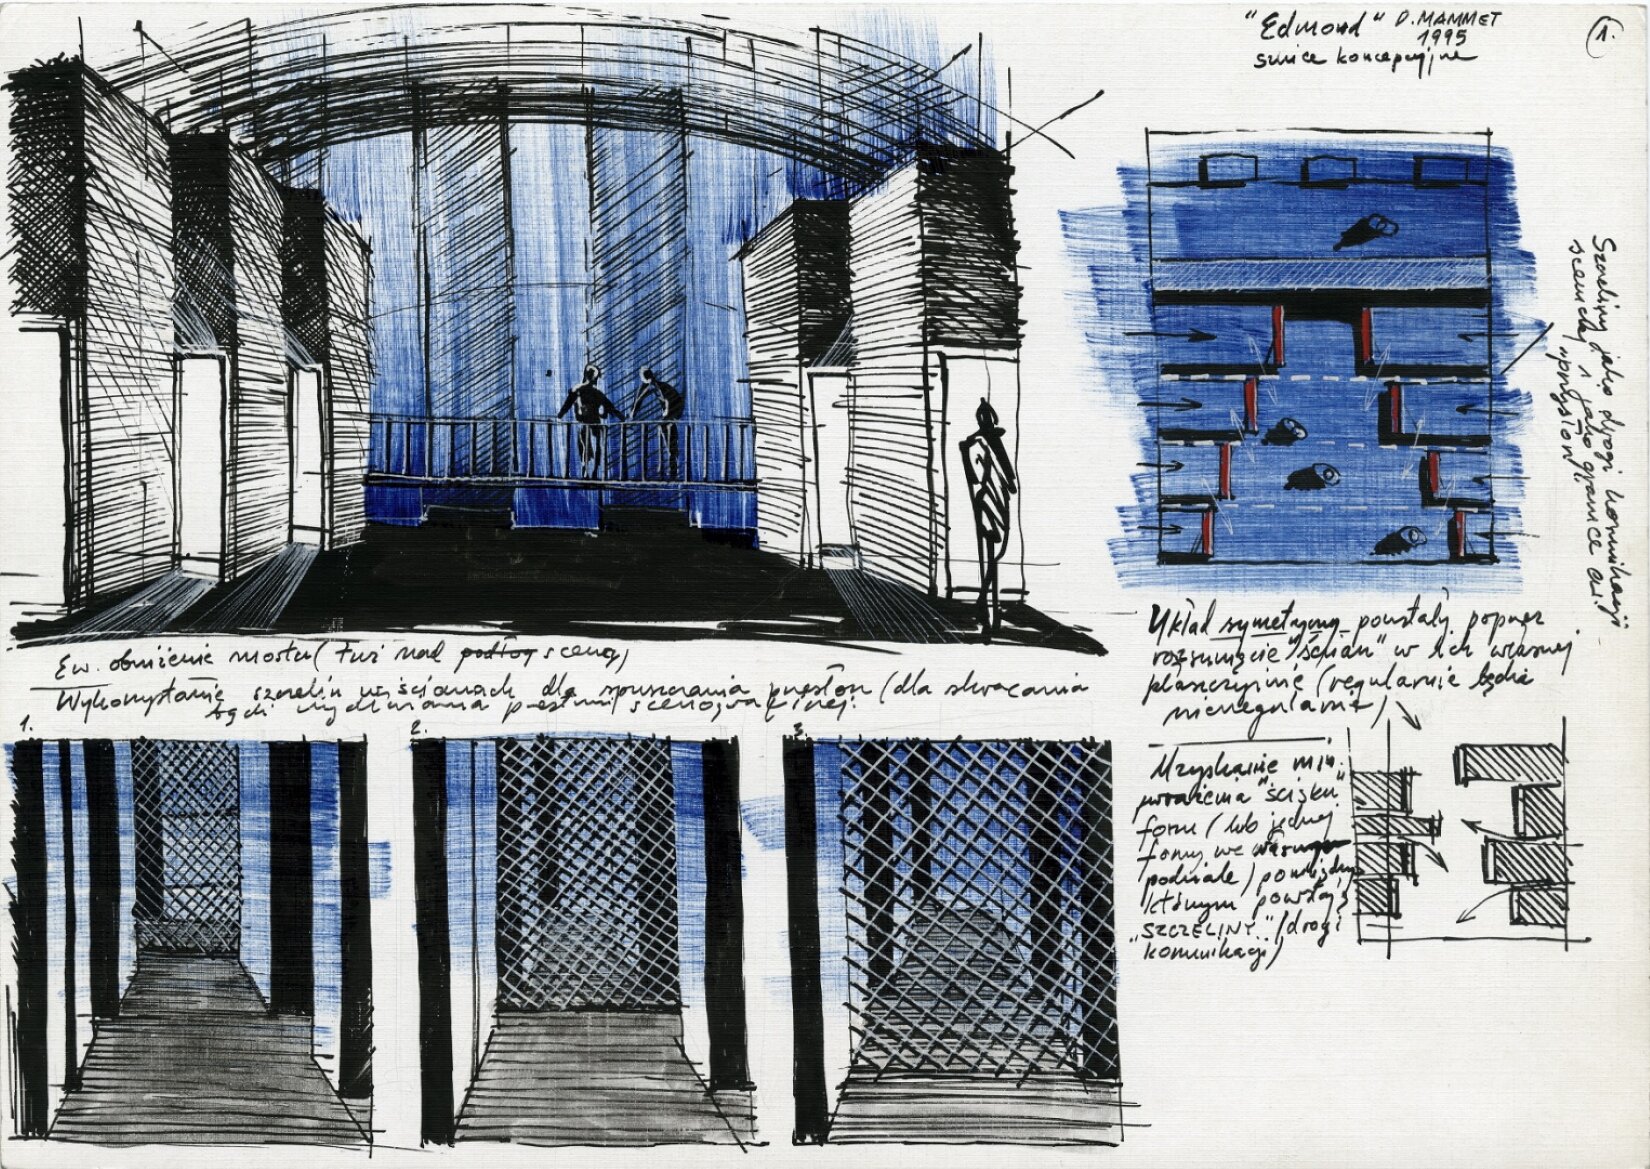 "Edmond" D. MAMMET
1995
szkice koncepcyjne
1.
Szczeliny jako drogi komunikacji
scenicznej i jako granice dla
Ew. obniżenie mostu (tuż nad podłog sceną)
Wykorzystanie szczelin w ścianach dla spuszczania przesłon (dla skracania
bądź wydłużania przestrzeni scenograficznej.
1.
2.
3.
Układ symetryczny powstały poprzez
rozsunięcie "ścian" w ich własnej
płaszczyźnie (regularnie będź
nieregularnie)
Uzyskanie min.
wrażenia "ścisku"
form (lub jednej
formy we
podziale) pomiędzy
którym powstają
"SZCZELINY" (drogi
komunikacji)